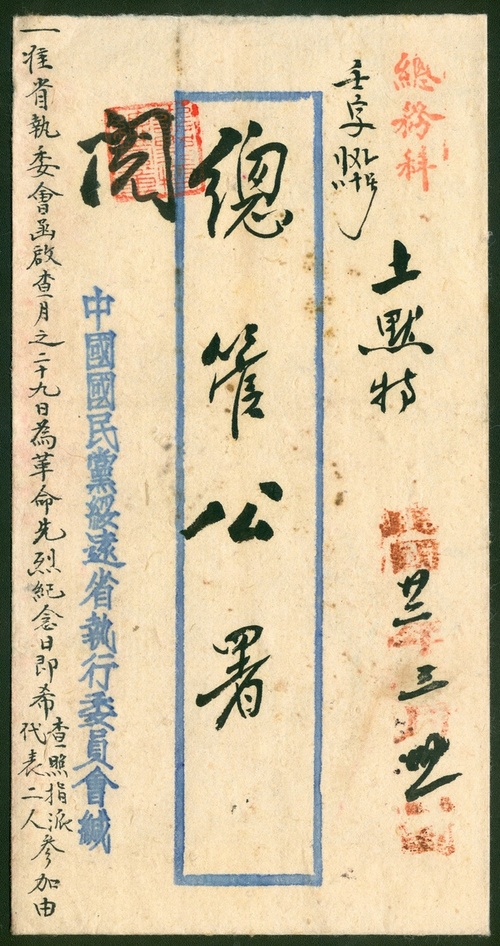 總務科
土默特
總管公署
閱
中國國民黨綏遠省執行委員會緘
一准省執委會函啟查月之二十九日為革命先烈紀念日即希查照指派代表二人參加由